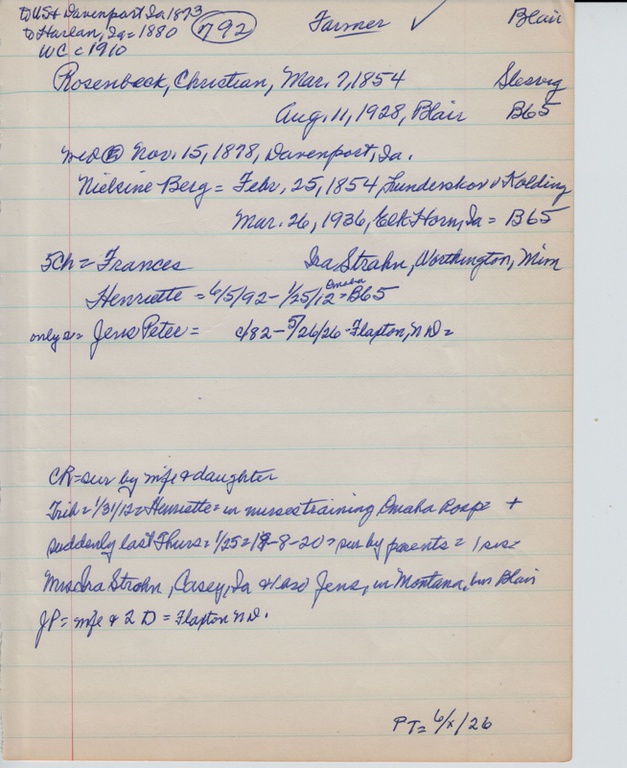 to US & Davenport Ia 1873
to Harlan, Ia = 1880 792 Farmer ✓ Blair
WC c 1910
Rosenbeck, Christian, Mar. 7, 1854 Slesvig
Aug. 11, 1928, Blair B65
wed Nov. 15, 1878, Davenport, Ia.
Nielsine Berg = Febr. 25, 1854, Lunderskov v Kolding
Mar. 26, 1936, Elk Horn, Ia = B65
5 Ch = Frances Ira Strahn, Worthington, Minn
Omaha
Henriette = 6/5/92 - 1/25/12 = B65
only s = Jens Peter = c/82 - 5/26/26 - Flaxton, ND =
CR = sur by wife & daughter
Trib = 1/31/12 = Henriette = in nurses training Omaha Hosp = +
suddenly last Thurs = 1/25 = 19-8-20 = sur by parents = 1 sis =
Mrs Ira Strahn, Casey, Ia & 1 bro Jens, in Montana, bur Blair
JP = wife & 2 D = Flaxton ND.
PT = 6/x/26